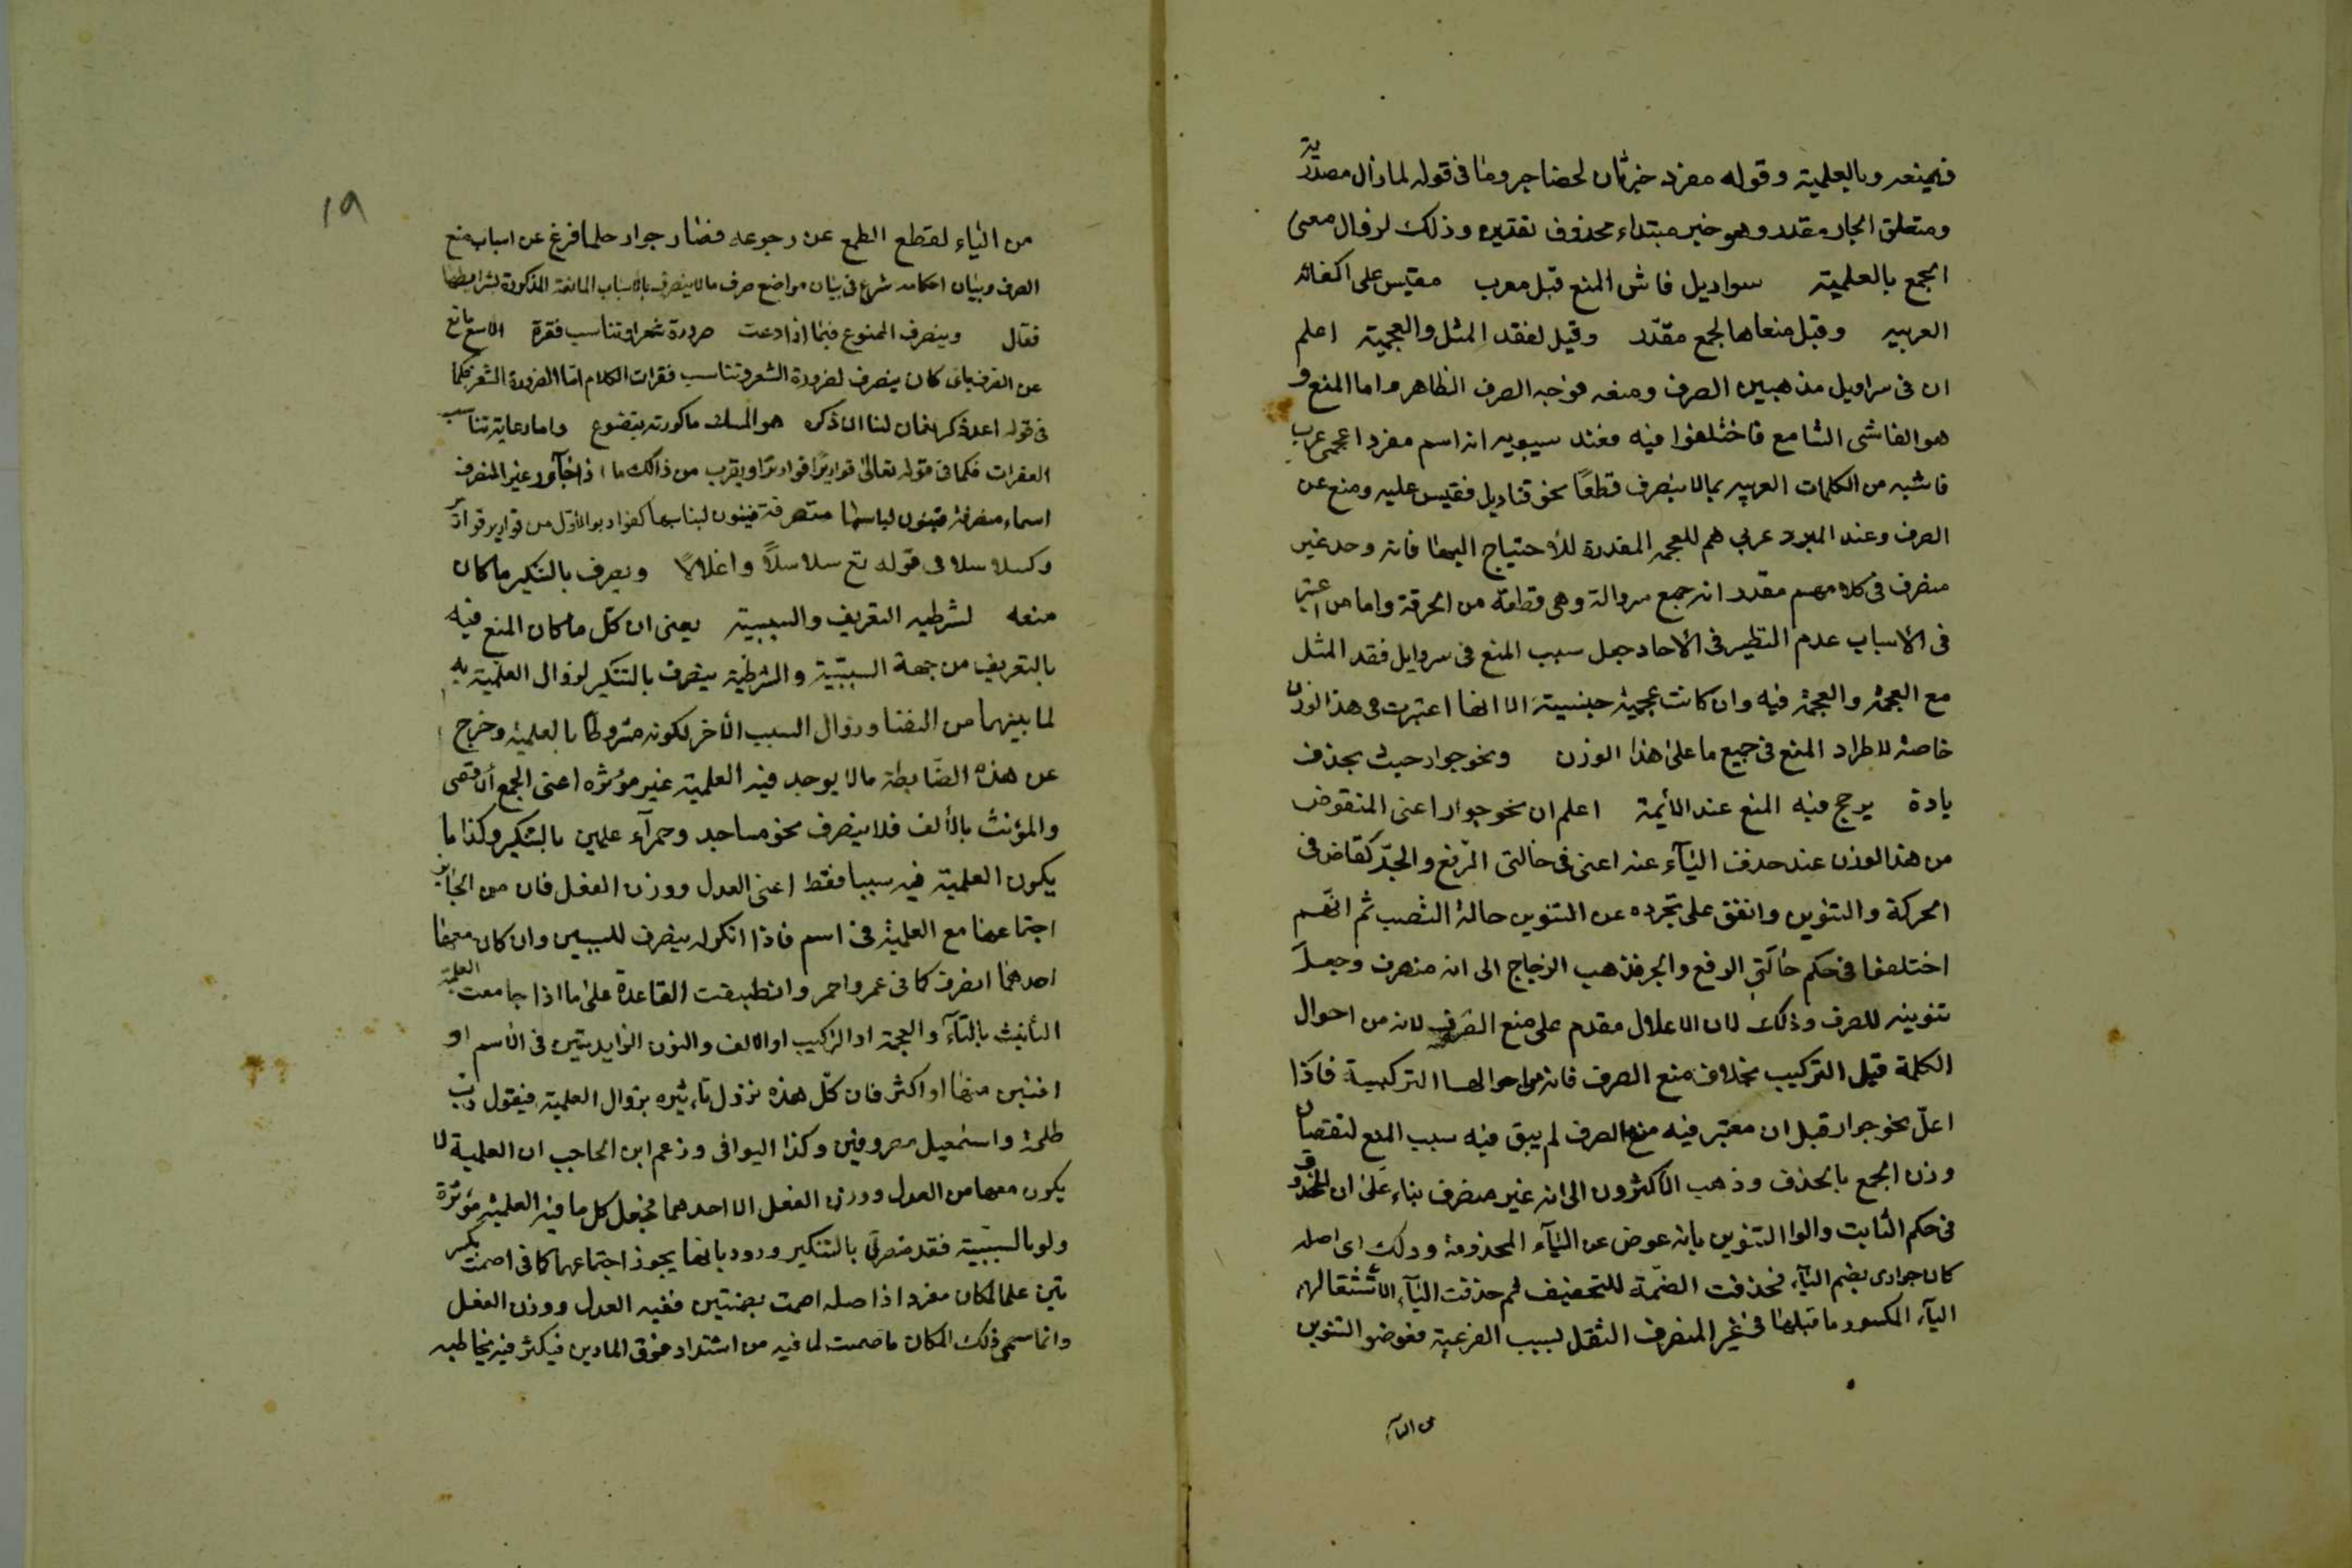 فيمنعه وبالعلمية وقوله مفرد خبر ثان لحضاجر وما فى قوله لما زال مصدرية
ومتعلق الجار مقدر وهو خبر مبتداء محذوف تقديره وذلك لزوال معنى
الجمع بالعلمية سراويل فاش المنع قبل معرب مقيس على اكفائه
العربيه وقبل منعاها لجمع مقدّر وقيل لفقد المثل والعجمية اعلم
ان فى سراويل مذهبين الصرف ومنعه فوجه الصرف الظاهر واما المنع و
هو الفاشى الشايع فاختلفوا فيه فعند سيبويه انه اسم مفرد اعجمى عرب
فاشبه من الكلمات العربيه بما لا ينصرف قطعًا نحو قناديل فقيس عليه ومنع عن
الصرف وعند المبرد عربى للعجمه المقدرة للأحتياج اليها فانه وجد غير
منصرف فى كلامهم مقدر انه جمع سروالة وهى قطعة من الخرقة واما من اعتبر
فى الأسباب عدم النظير فى الأحاد جعل سبب المنع فى سراويل فقد المثل
مع العجمة والعجمة فيه وان كانت عجمية جنسية الا انها اعتبرت فى هذا الوزن
خاصة لاطراد المنع فى جميع ما على هذا الوزن ونحو جوار حيث بحذف
يادة يرجح فيه المنع عند الأيمة اعلم ان نحو جوار اعنى المنقوض
من هذا الوزن عند حذف اليآء عنه اعنى فى حالتى الرّفع والجرّ كقاض فى
الحركة والتنوين واتفق على تجرده عن التنوين حالة النصب ثم انهم
اختلفوا فى حكم حالتى الرفع والجر فذهب الزجاج الى انه منصرف وجعل
تنوينه للصرف وذلك لان الاعلال مقدم على منع الصرف لانه من احوال
الكلمة قبل التركيب بخلاف منع الصرف فانه من احوالها التركيبية فاذا
اعلّ نحو جوار قبل ان معتبر فيه منع الصرف لم يبق فيه سبب المنع لنقصان
وزن الجمع بالحذف وذهب الأكثرون الى انه غير منصرف بناء على ان المحذوف
فى حكم الثابت والوا التنوين بانه عوض عن اليآء المحذوفة وذلك اى اصله
كان جوارى بضم اليآء فحذفت الضمّة للتخفيف ثم حذفت اليآء لاستثقالهم
اليآء المكسور ما قبلها فى غير المنصرف الثقل بسبب الفرعية فعوضوا التنوين
من اليآء
١٩
من الياء لقطع الطمع عن رجوعه فصار جوار فلما فرغ عن اسباب منع
الصرف وبيان احكامه شرع فى بيان مواضع صرف ما لا ينصرف بالاسباب المانعة المذكورة بشرايطها
فقال وينصرف الممنوع فيما اذا دعت ضرورة شعر او تناسب فقرة
عن الصرف باى كان ينصرف لضرورة الشعر وتناسب فقرات الكلام امّا الضرورة الشعر فكما
فى قوله اعد ذكر نعمان لنا ان ذكره هو المسك ما كررته يتضوع واما رعاية تناسب
الفقرات فكما فى قوله تعالى قواريرًا قواريرًا ويقرب من ذالك ما اذا جآور غير المنصرف
اسماء منصرفة فينون ليناسبها كقواريرا الاوّل من قوارير
وكسلاسلا فى قوله تع سلاسلًا واغلالًا ويصرف بالتنكير ما كان
منعه لشرطيه التعريف والسببية يعنى ان كل ما كان المنع فيه
بالتعريف من جهة السببيّة والشرطيّة ينصرف بالتنكير لزوال العلمية به
لما بينهما من التضاد وزوال السبب الأخر لكونه مشروطا بالعلمية وخرج
عن هذه الضّابطة مالا يوجد فيه العلمية غير مؤثره اعنى الجمع الاقصى
والمؤنث بالألف فلا ينصرف نحو مساجد وحمرآء علمين بالتنكير وكذا ما
يكون العلمية فيه سببا فقط اعنى العدل ووزن الفعل فان من الجايز
اجتماعهما مع العلمية فى اسم فاذا انكر لم ينصرف للسببين وان كان معها
احدهما انصرف كما فى عمر واحمر وانطبقت القاعدة على ما اذا جامعت العلميّة
التأنيث بالتآء والعجمة او التركيب او الالف والنون الزايدتين فى الاسم او
اثنين منها او اكثر فان كلّ هذه نزول تاءثيره بزوال العلمية فيقول ربّ
طلحة واسمعيل مصروفين وكذا البوافى وزعم ابن الحاجب ان العلمية لا
يكون معها من العدل ووزن الفعل الا احدهما فجعل كل ما فيه العلمية مؤثرة
ولو بالسببيّة فقد ينصرف بالتنكير ورود بانها يجوز اجتماعهما كما فى اصمت بكسر
تين علما لمكان مفرد اذ اصله اصمت بضمتين ففيه العدل ووزن الفعل
وانما سمى ذلك المكان باصمت لما فيه من اشتداد خوف المارين فيكثر فيه مخاطبه